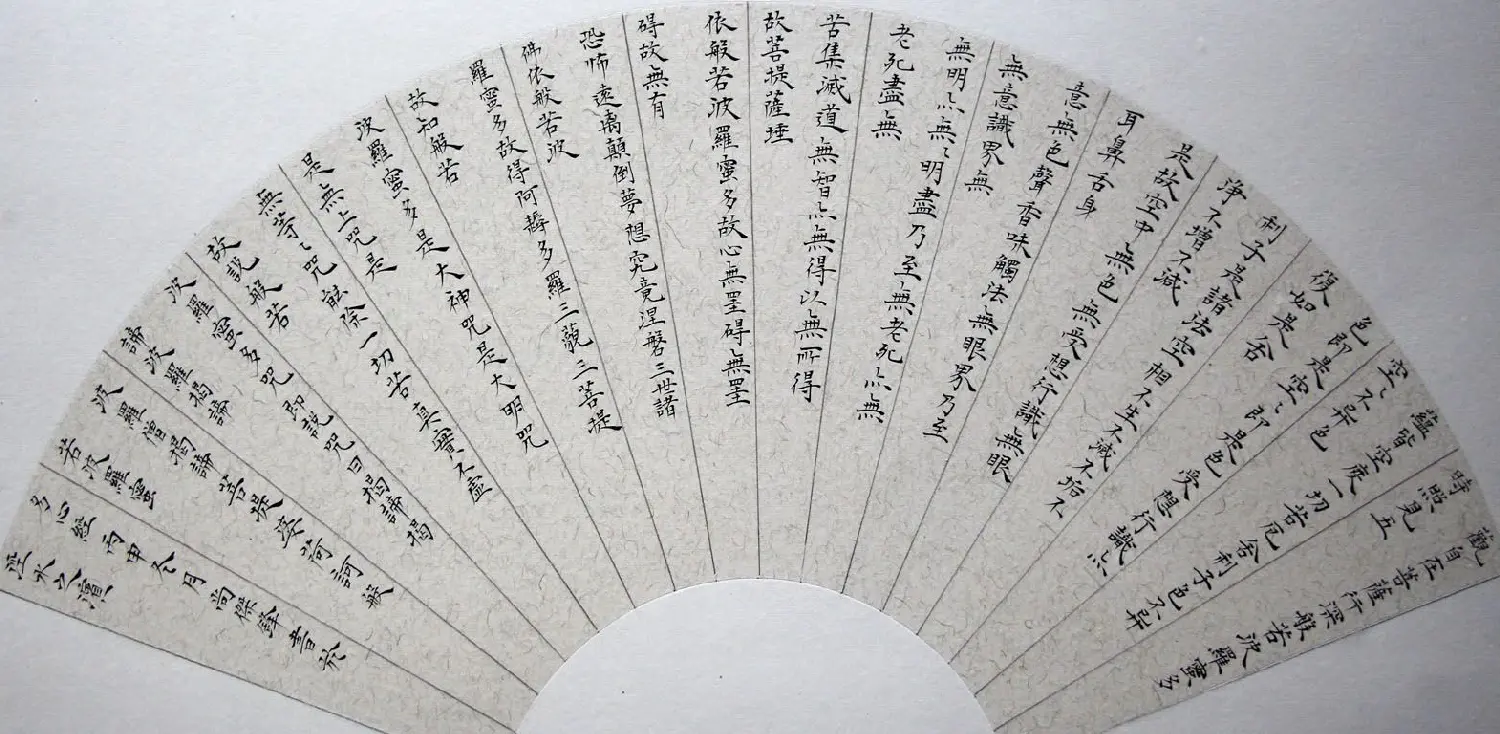 觀自在菩薩行深般若波羅蜜多
時照見五
蘊皆空度一切苦厄舍利子色不異
空〻不異色
色即是空〻即是色受想行識亦
復如是舍
利子是諸法空相不生不滅不垢不
淨不增不減
是故空中無色無受想行識無眼
耳鼻舌身
意無色聲香味觸法無眼界乃至
無意識界無
無明亦無〻明盡乃至無老死亦無
老死盡無
苦集滅道無智亦無得以無所得
故菩提薩埵
依般若波羅蜜多故心無罣碍無罣
碍故無有
恐怖遠離顛倒夢想究竟涅磐三世諸
佛依般若波
羅蜜多故得阿耨多羅三藐三菩提
故知般若
波羅蜜多是大神咒是大明咒
是無上咒是
無等〻咒能除一切苦真實不虛
故說般若
波羅蜜多咒即說咒曰揭諦揭
諦波羅揭諦
波羅僧揭諦菩提娑荷訶般
若波羅蜜
多心經丙申冬月尚傑鋒書於
水之濱